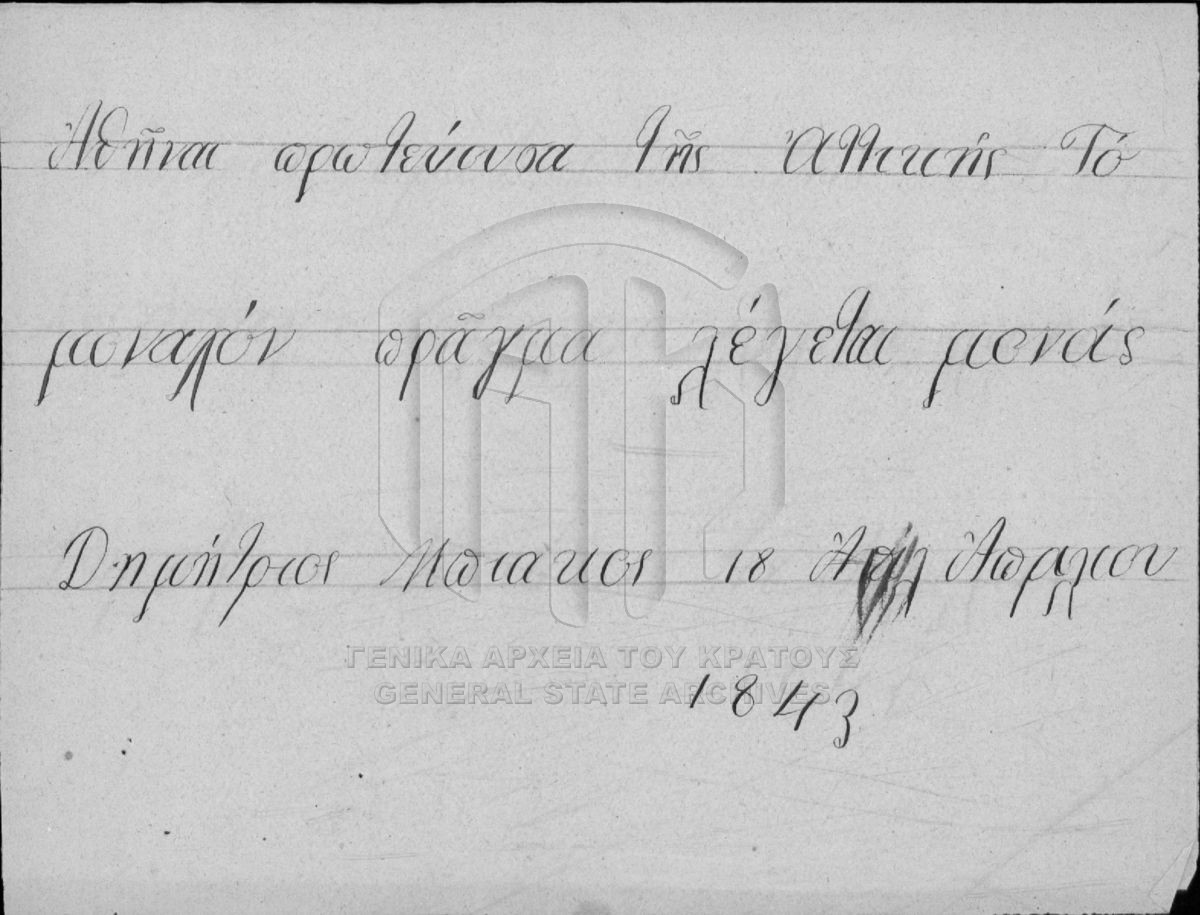 Ἀθῆναι πρωτεύουσα τῆς Ἀττικῆς Τό
μοναλόν πρᾶγμα λέγεται μονάς
Δημήτριος Μπιακος 18 Ἀπραλιου
ΓΕΝΙΚΑ ΑΡΧΕΙΑ ΤΟΥ ΚΡΑΤΟΥΣ
GENERAL STATE ARCHIVES
1843